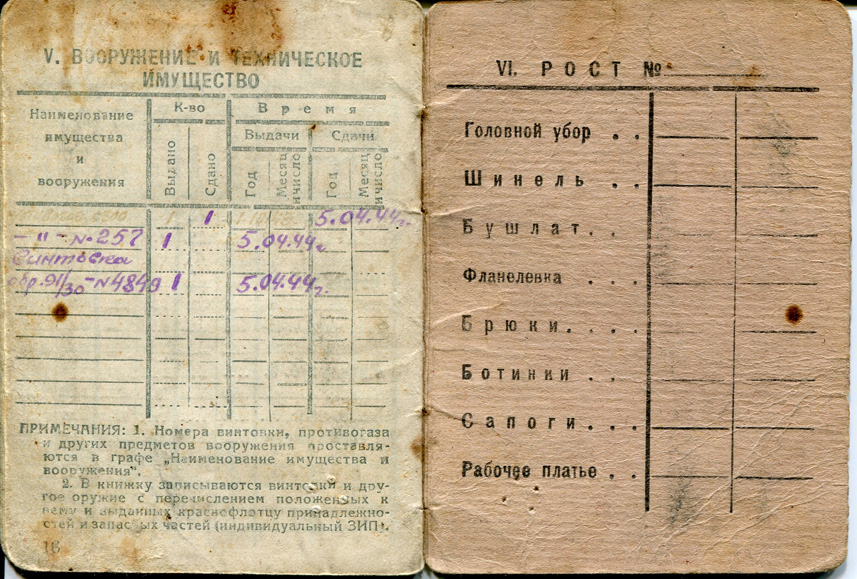 V. ВООРУЖЕНИЕ И ТЕХНИЧЕСКОЕ
ИМУЩЕСТВО
Наименование
имущества
и
вооружения
К-во
Выдано
Сдано
Время
Выдачи
Сдачи
Год
Месяц
и число
Год
Месяц
и число
1 1 5.04.44г.
— " — № 257 1 5.04.44г.
Винтовка
обр. 91/30 - № 4849 1 5.04.44г.
ПРИМЕЧАНИЯ: 1. Номера винтовки, противогаза
и других предметов вооружения проставля-
ются в графе „Наименование имущества и
вооружения".
2. В книжку записываются винтовки и дру-
гое оружие с перечислением положенных к
нему и выданных краснофлотцу принадлежно-
стей и запасных частей (индивидуальный ЗИП).
16
VI. РОСТ №
Головной убор . .
Шинель . .
Бушлат . .
Фланелевка . . .
Брюки . . . .
Ботинки . . .
Сапоги . . . .
Рабочее платье . .